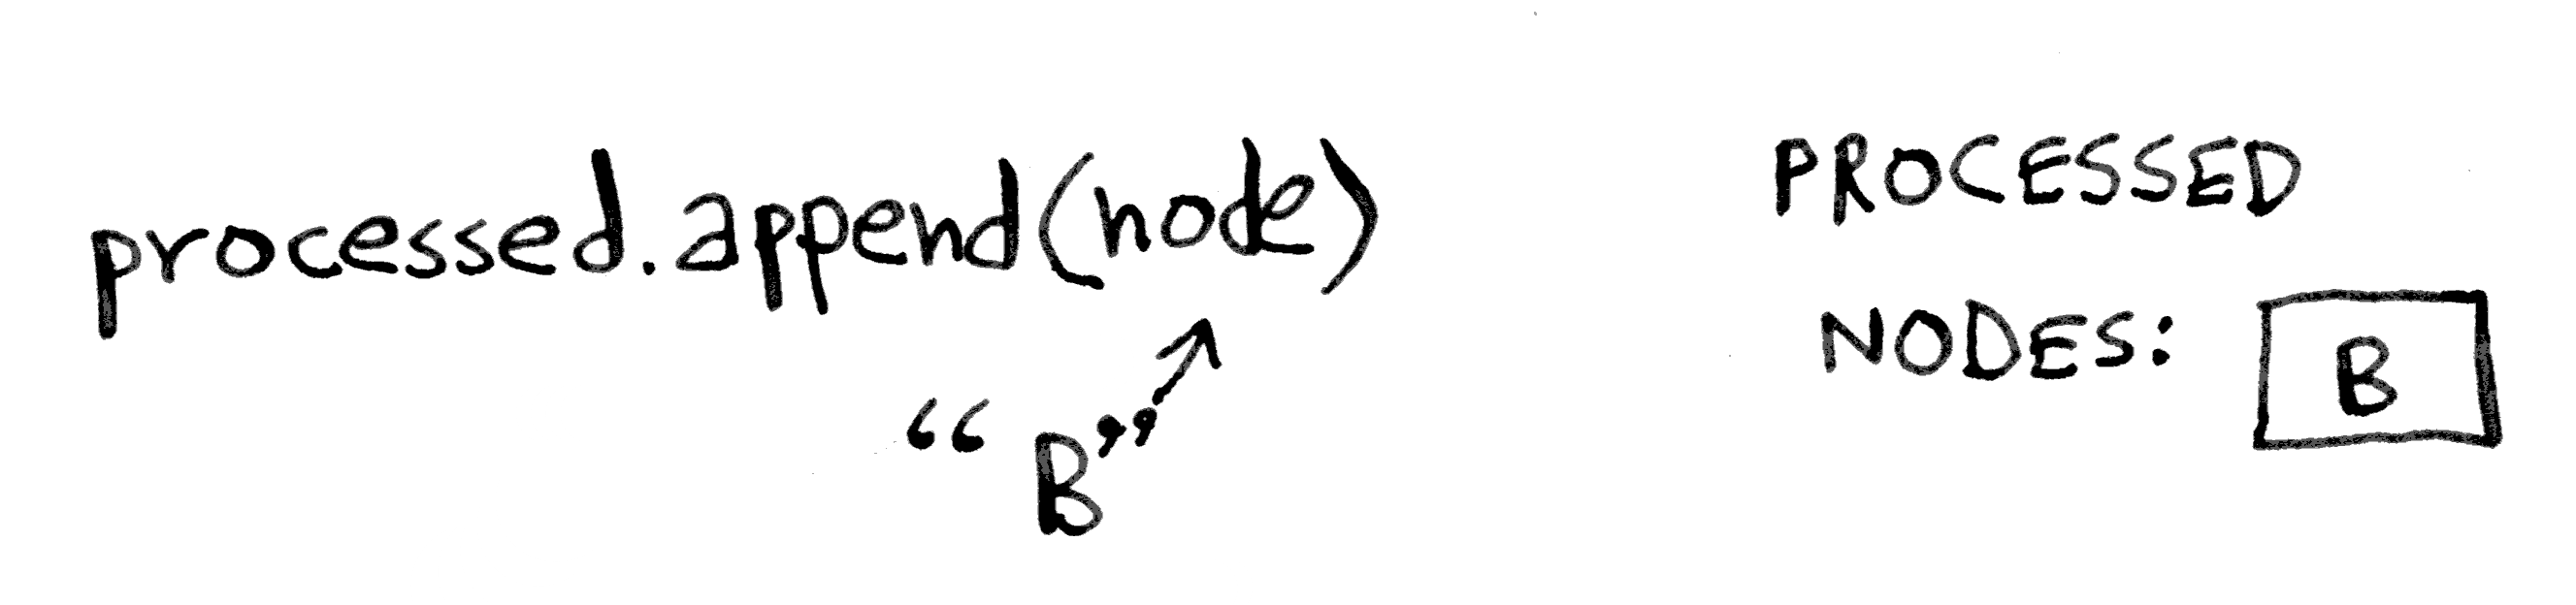 processed.append(node)
“B”
PROCESSED
NODES: B